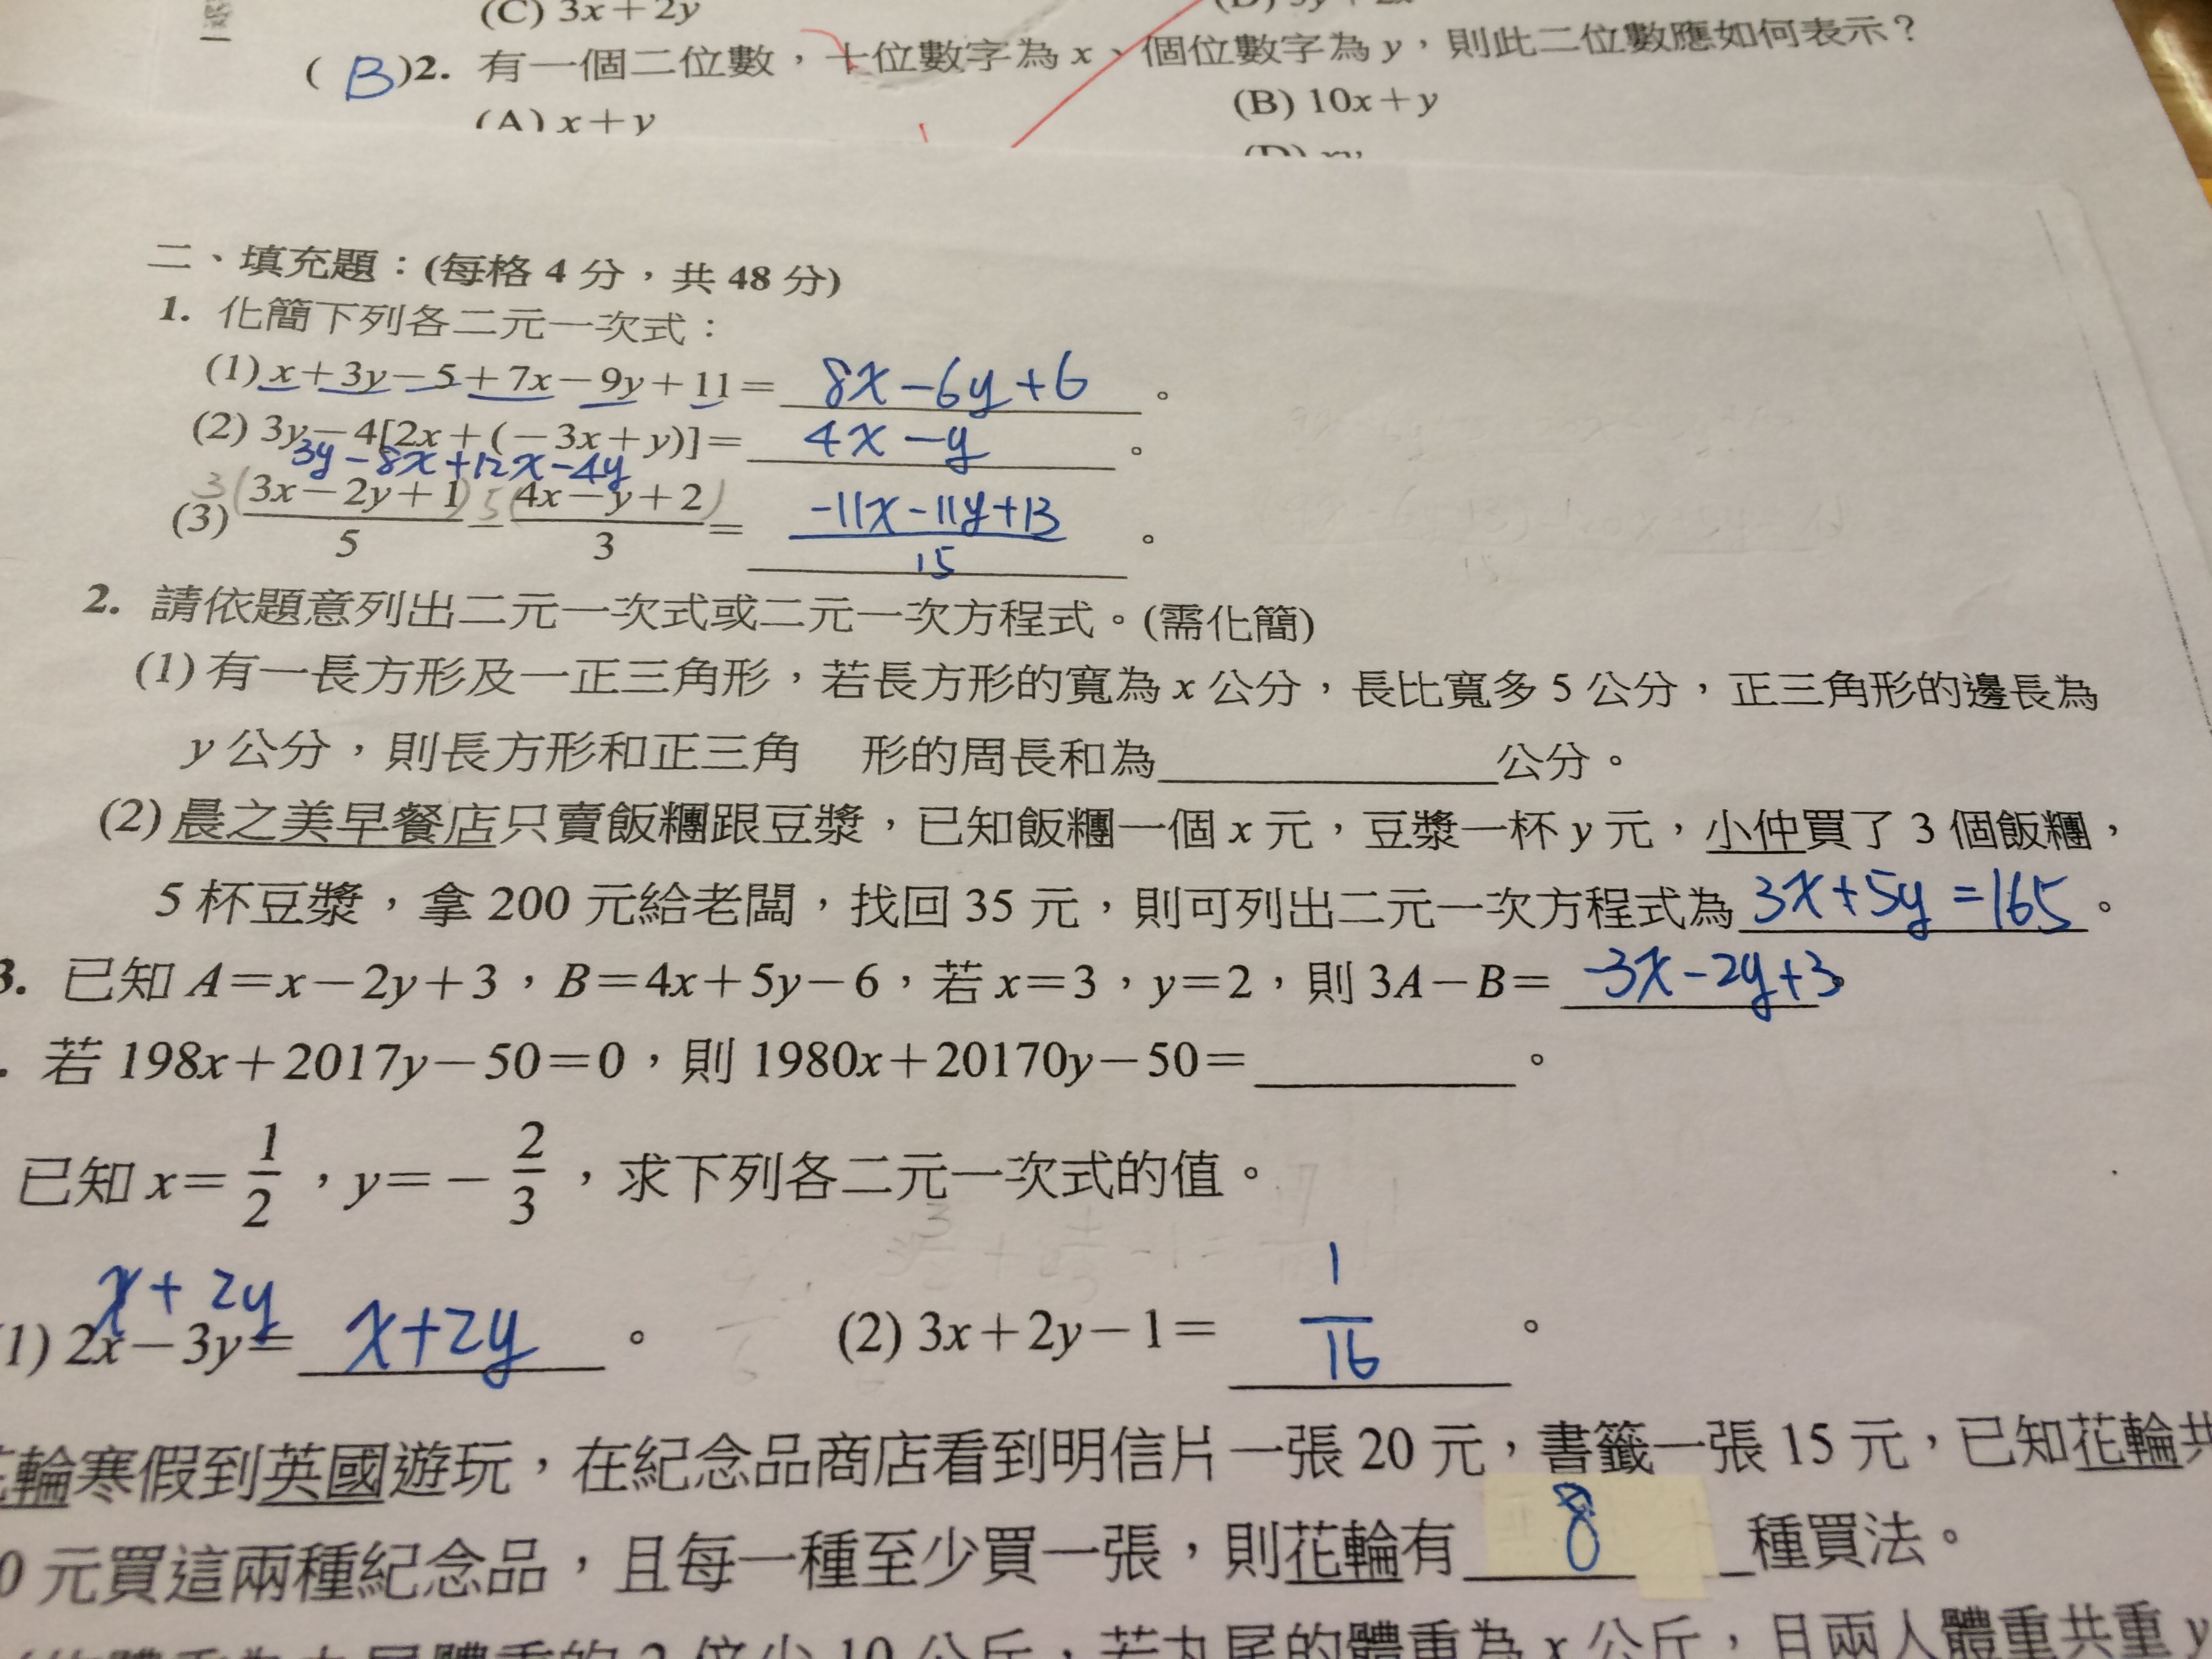 (C) 3x+2y
( B )2. 有一個二位數，十位數字為 x、個位數字為 y，則此二位數應如何表示？
(A) x+y (B) 10x+y
二、填充題：(每格 4 分，共 48 分)
1. 化簡下列各二元一次式：
(1) x+3y-5+7x-9y+11= 8x-6y+6 。
(2) 3y-4[2x+(-3x+y)]= 4x-y 。
3y-8x+12x-4y
(3) 3(3x-2y+1)/5 - 5(4x-y+2)/3 = -11x-11y+13/15 。
2. 請依題意列出二元一次式或二元一次方程式。(需化簡)
(1) 有一長方形及一正三角形，若長方形的寬為 x 公分，長比寬多 5 公分，正三角形的邊長為
y 公分，則長方形和正三角 形的周長和為____公分。
(2) 晨之美早餐店只賣飯糰跟豆漿，已知飯糰一個 x 元，豆漿一杯 y 元，小仲買了 3 個飯糰，
5 杯豆漿，拿 200 元給老闆，找回 35 元，則可列出二元一次方程式為 3x+5y=165 。
3. 已知 A=x-2y+3，B=4x+5y-6，若 x=3，y=2，則 3A-B= -3x-2y+3
. 若 198x+2017y-50=0，則 1980x+20170y-50=____。
已知 x=1/2，y=-2/3，求下列各二元一次式的值。
x+2y
1) 2x-3y= x+2y 。 (2) 3x+2y-1= 1/16 。
輪寒假到英國遊玩，在紀念品商店看到明信片一張 20 元，書籤一張 15 元，已知花輪共
0 元買這兩種紀念品，且每一種至少買一張，則花輪有 8 種買法。
體重為丸尾體重的 2 倍少 10 公斤，若丸尾的體重為 x 公斤，且兩人體重共重 y